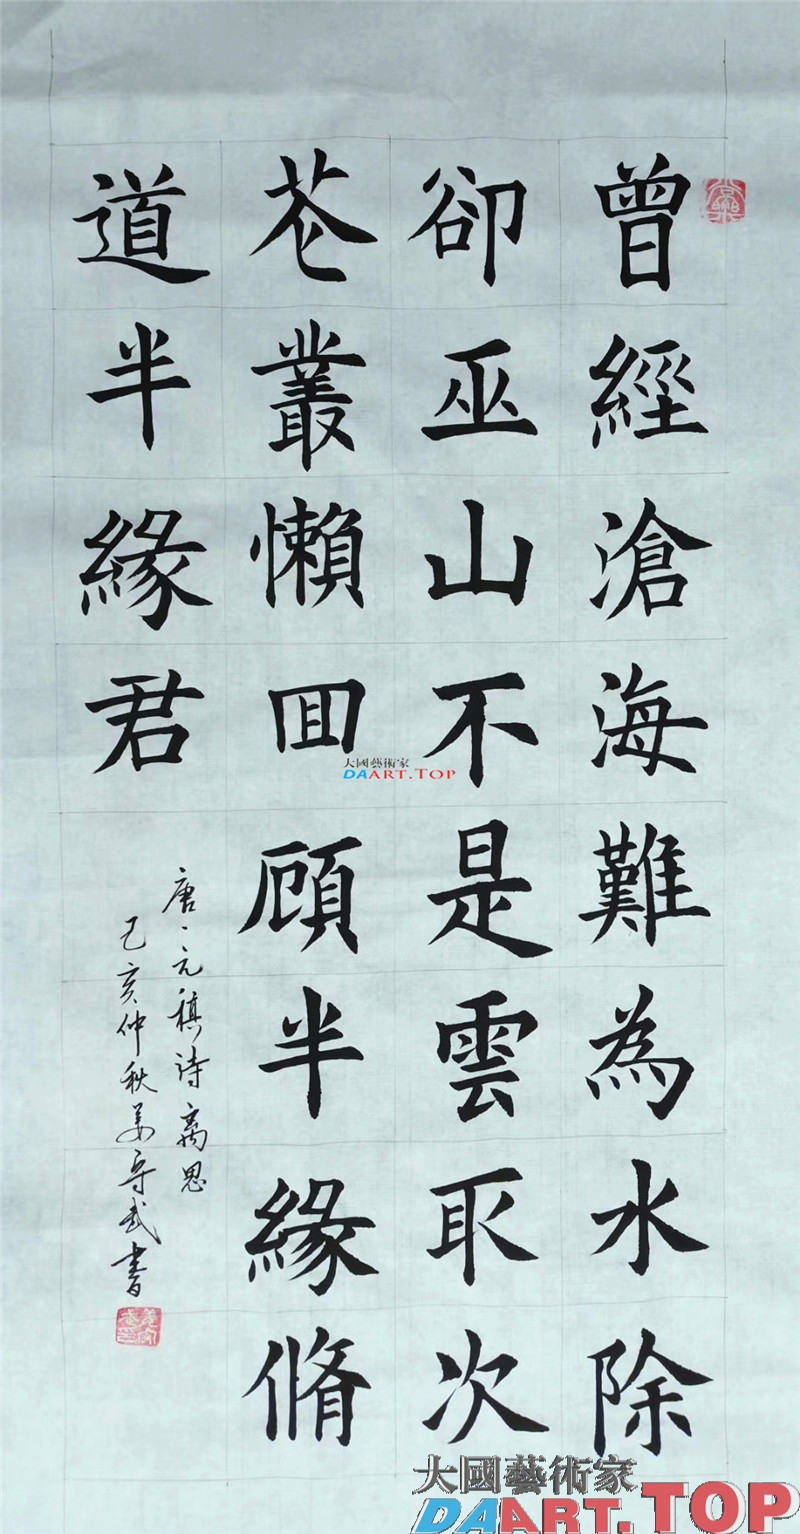 曾經滄海難為水除
卻巫山不是雲取次
花叢懶囬頋半緣脩
道半緣君
唐、元稹诗离思
己亥仲秋姜守武書
大國藝術家
DAART.TOP
大國藝術家
DAART.TOP